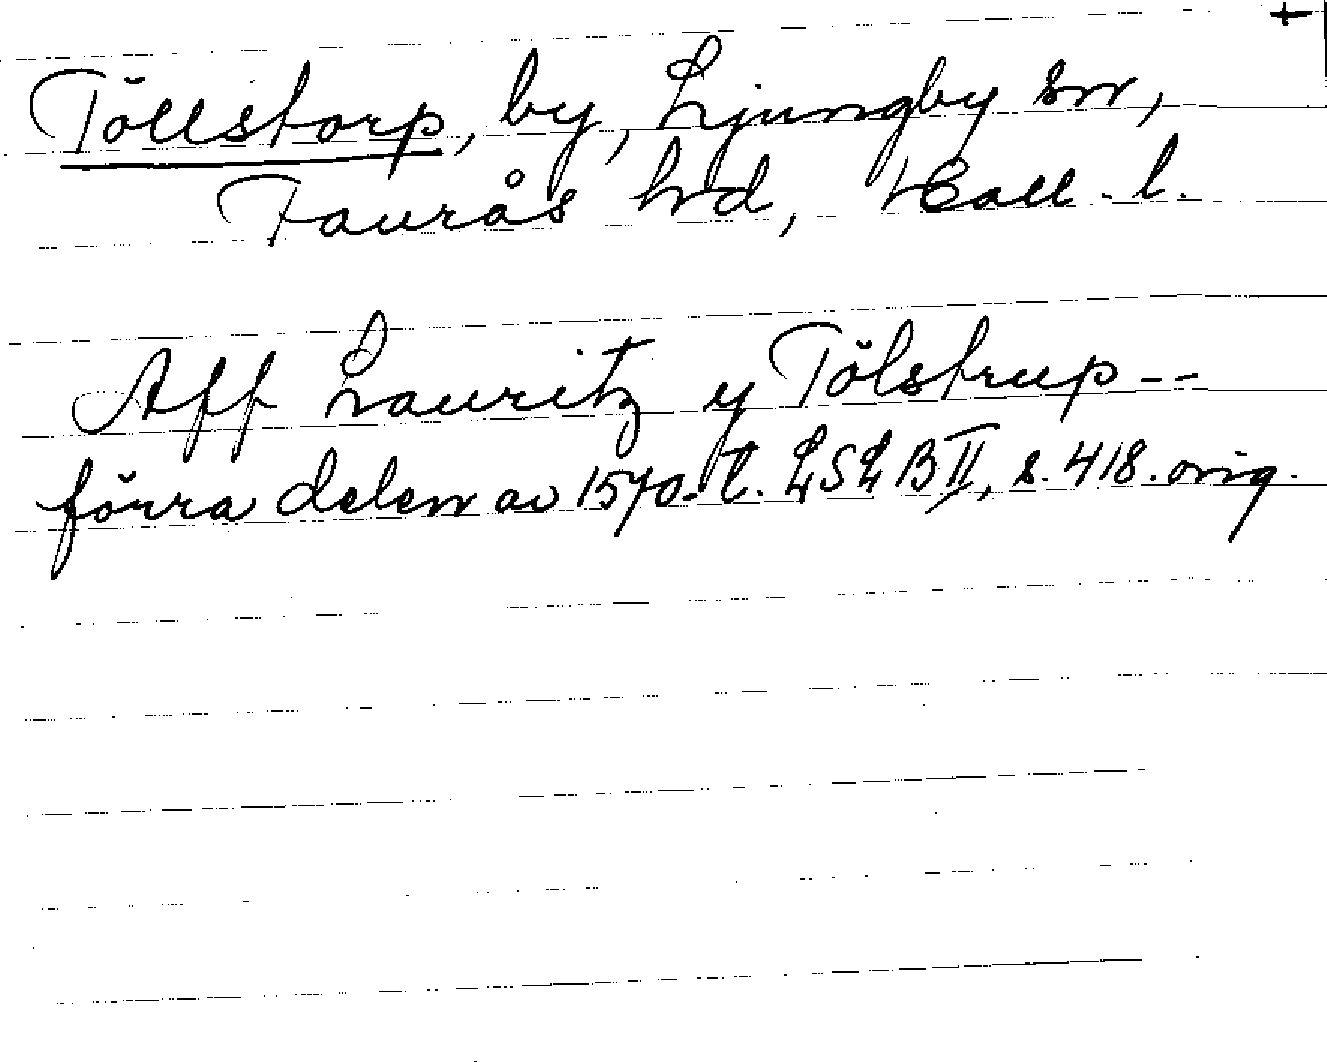 Töllstorp, by, Ljungby sn,
Faurås hd, Hall. l.
Aff Lauritz y Tölstrup--
förra delen av 1570-t. LSLB II, s. 418. orig.